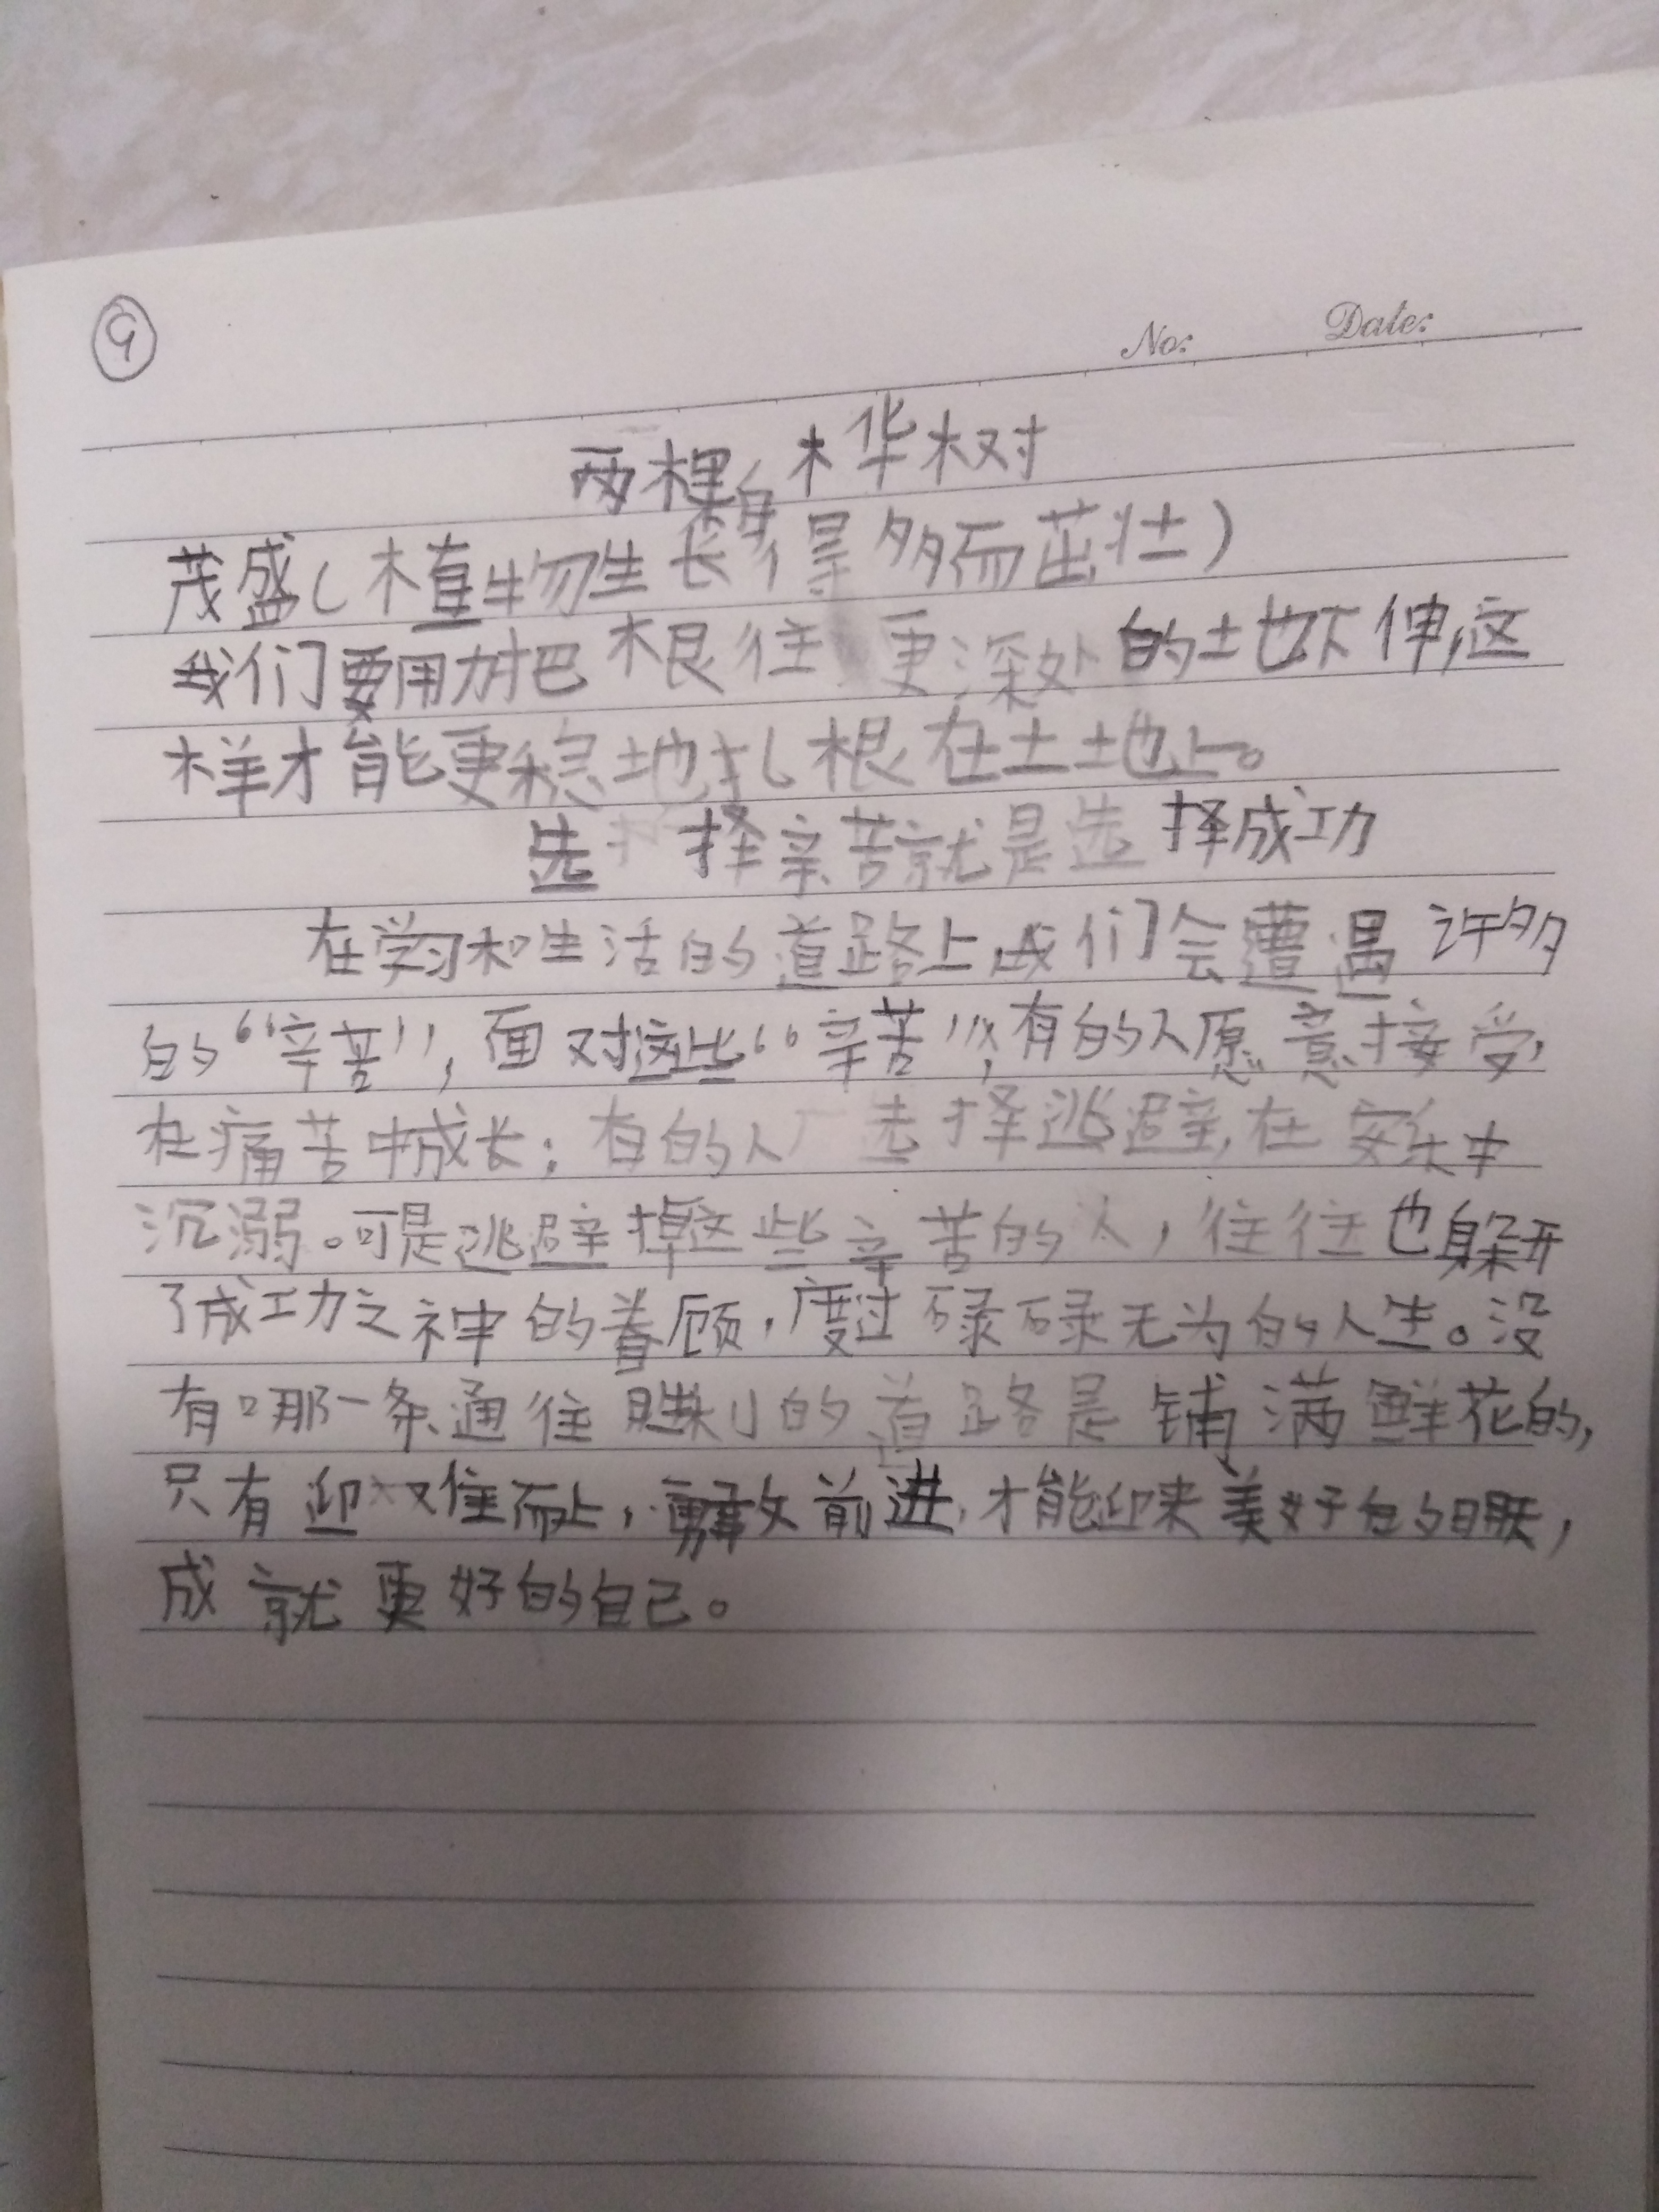 9
No: Date:
两棵白桦树
茂盛(植物生长得多而茁壮)
我们要用力把根往更深处的土地下伸,这
样才能更稳地扎根在土地上。
选择辛苦就是选择成功
在学习和生活的道路上我们会遭遇许多
的“辛苦”,面对这些“辛苦”,有的人愿意接受,
在痛苦中成长;有的人选择逃避,在安乐中
沉溺。可是逃避掉这些辛苦的人,往往也躲开
了成功之神的眷顾,度过碌碌无为的人生。没
有哪一条通往胜利的道路是铺满鲜花的,
只有迎难而上,勇敢前进,才能迎来美好的明天,
成就更好的自己。